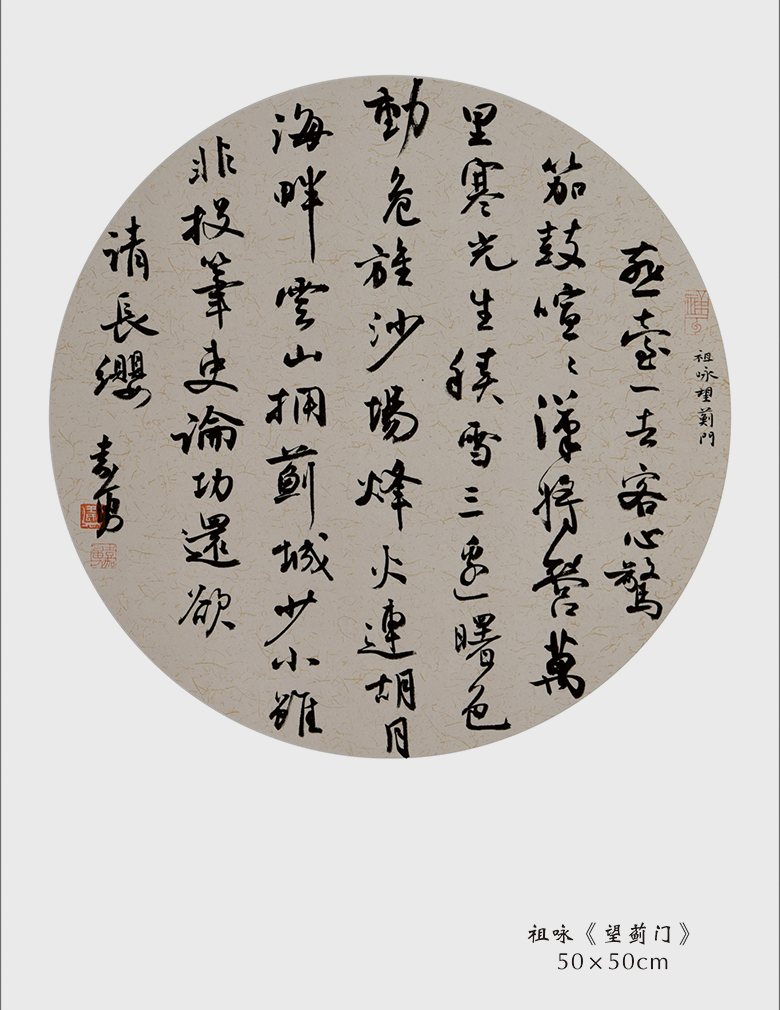 祖咏望薊門
燕臺一去客心驚
笳鼓喧〻漢將營萬
里寒光生積雪三邊曙色
動危旌沙場烽火連胡月
海畔雲山拥薊城少小雖
非投筆吏論功還欲
請長纓
祖咏《望蓟门》
50×50cm